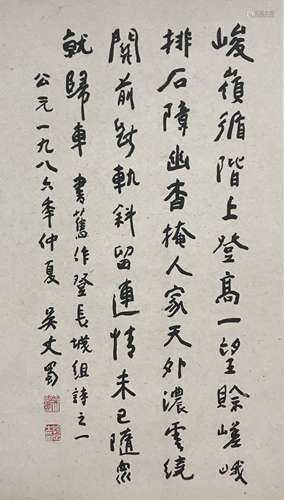 峻嶺循階上登高一望賒嵯峨
排石障幽杳掩人家天外濃雲繞
關前斷軌斜留連情未已隨眾
就歸車 書舊作登長城組詩之一
公元一九八六年仲夏 吴丈蜀